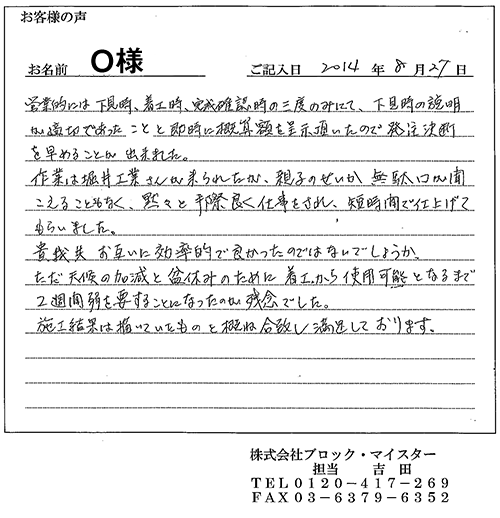 お客様の声
お名前 O様 ご記入日 2014 年 8 月 27 日
営業的には下見時、着工時、完成確認時の三度のみにて、下見時の説明
が適切であったことと即時に概算額を呈示頂いたので発注決断
を早めることが出来ました。
作業は堀井工業さんが来られたが、親子のせいか無駄口が聞
こえることもなく、黙々と手際良く仕事をされ、短時間で仕上げて
もらいました。
貴我共お互いに効率的で良かったのではないでしょうか。
ただ天候の加減と盆休みのために着工から使用可能となるまで
2週間弱を要することになったのが残念でした。
施工結果は描いていたものと概ね合致し満足しております。
株式会社ブロック・マイスター
担当 吉田
TEL0120-417-269
FAX03-6379-6352